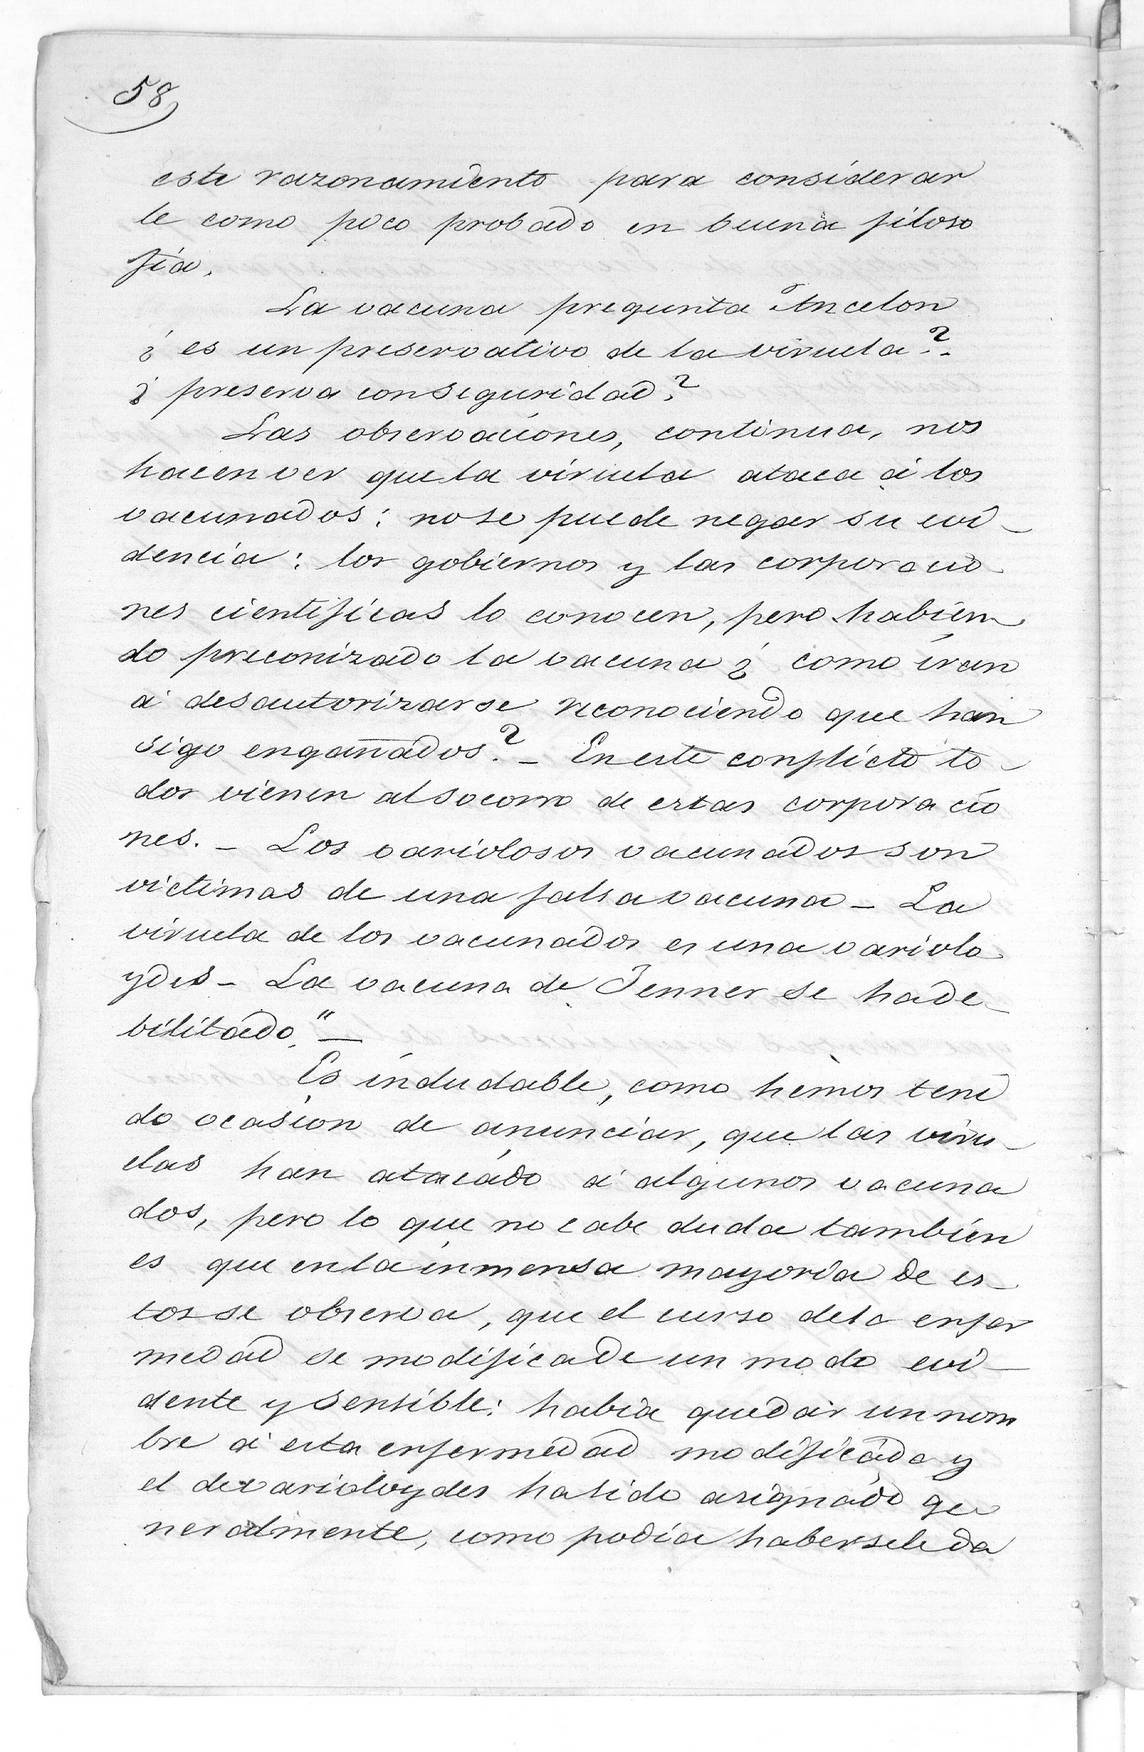 58
este razonamiento para considerar
le como poco probado en buena filoso
fia.
La vacuna pregunta Ancelon
¿ es un preservativo de la viruela?.
¿ preserva con seguridad?
Las observaciones, continua, nos
hacen ver que la viruela ataca á los
vacunados: no se puede negar su evi-
dencia: los gobiernos y las corporacio-
nes cientificas lo conocen, pero habien-
do preconizado la vacuna ¿ como iran
á desautorizarse reconociendo que han
sigo engañados? - En este conflicto to-
dos vienen al socorro de estas corporacio
nes. - Los variolosos vacunados son
victimas de una falsa vacuna - La
viruela de los vacunados es una variolo
ydes - La vacuna de Jenner se ha de-
bilitado." -
Es indudable, como hemos teni
do ocasion de anunciar, que las viru-
elas han atacado á algunos vacuna
dos, pero lo que no cabe duda tambien
es que en la inmensa mayoria de es-
tos se observa, que el curso de la enfer
medad se modifica de un modo evi-
dente y sensible: habia que dar un nom
bre á esta enfermedad modificada y
el de varioloydes ha sido asignado ge
neralmente, como podia habersele da